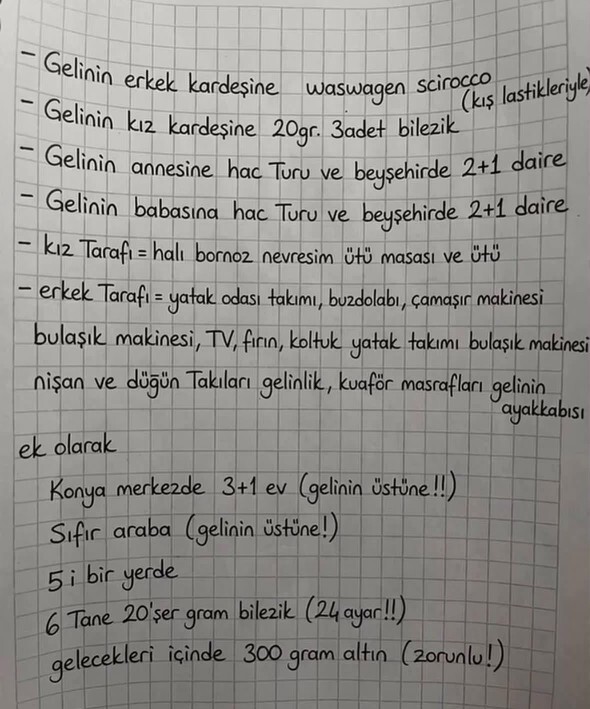 - Gelinin erkek kardeşine waswagen scirocco
(kış lastikleriyle)
- Gelinin kız kardeşine 20gr. 3adet bilezik
- Gelinin annesine hac Turu ve beyşehirde 2+1 daire
- Gelinin babasına hac Turu ve beyşehirde 2+1 daire
- kız Tarafı = halı bornoz nevresim ütü masası ve ütü
- erkek Tarafı = yatak odası takımı, buzdolabı, çamaşır makinesi
bulaşık makinesi, TV, fırın, koltuk yatak takımı bulaşık makinesi
nişan ve düğün Takıları gelinlik, kuaför masrafları gelinin
ayakkabısı
ek olarak
Konya merkezde 3+1 ev (gelinin üstüne!!)
Sıfır araba (gelinin üstüne!)
5 i bir yerde
6 Tane 20'şer gram bilezik (24 ayar!!)
gelecekleri içinde 300 gram altın (zorunlu!)